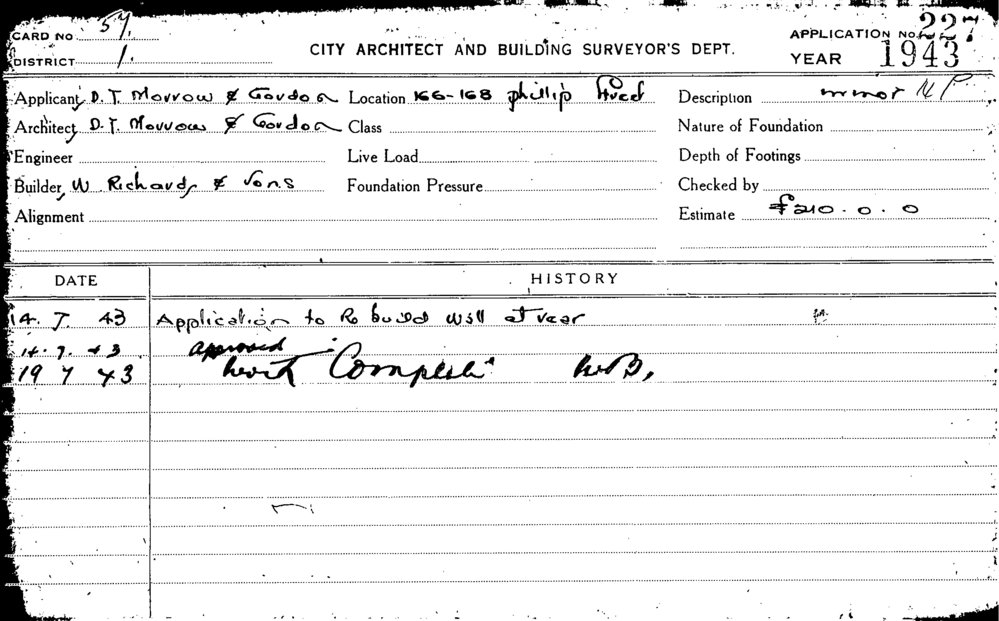 CARD NO 57.
APPLICATION No. 227
DISTRICT 1.
CITY ARCHITECT AND BUILDING SURVEYOR'S DEPT.
YEAR 1943
Applicant, D. T. Morrow & Gordon Location 166-168 phillip Street Description minor
Architect, D. T. Morrow & Gordon Class Nature of Foundation
Engineer Live Load Depth of Footings
Builder, W Richards & Sons Foundation Pressure Checked by
Alignment Estimate £210. 0. 0
DATE HISTORY
14. 7. 43 Application to Re build Wall at rear
14. 7. 43 approved
19 7 43 Work Complete